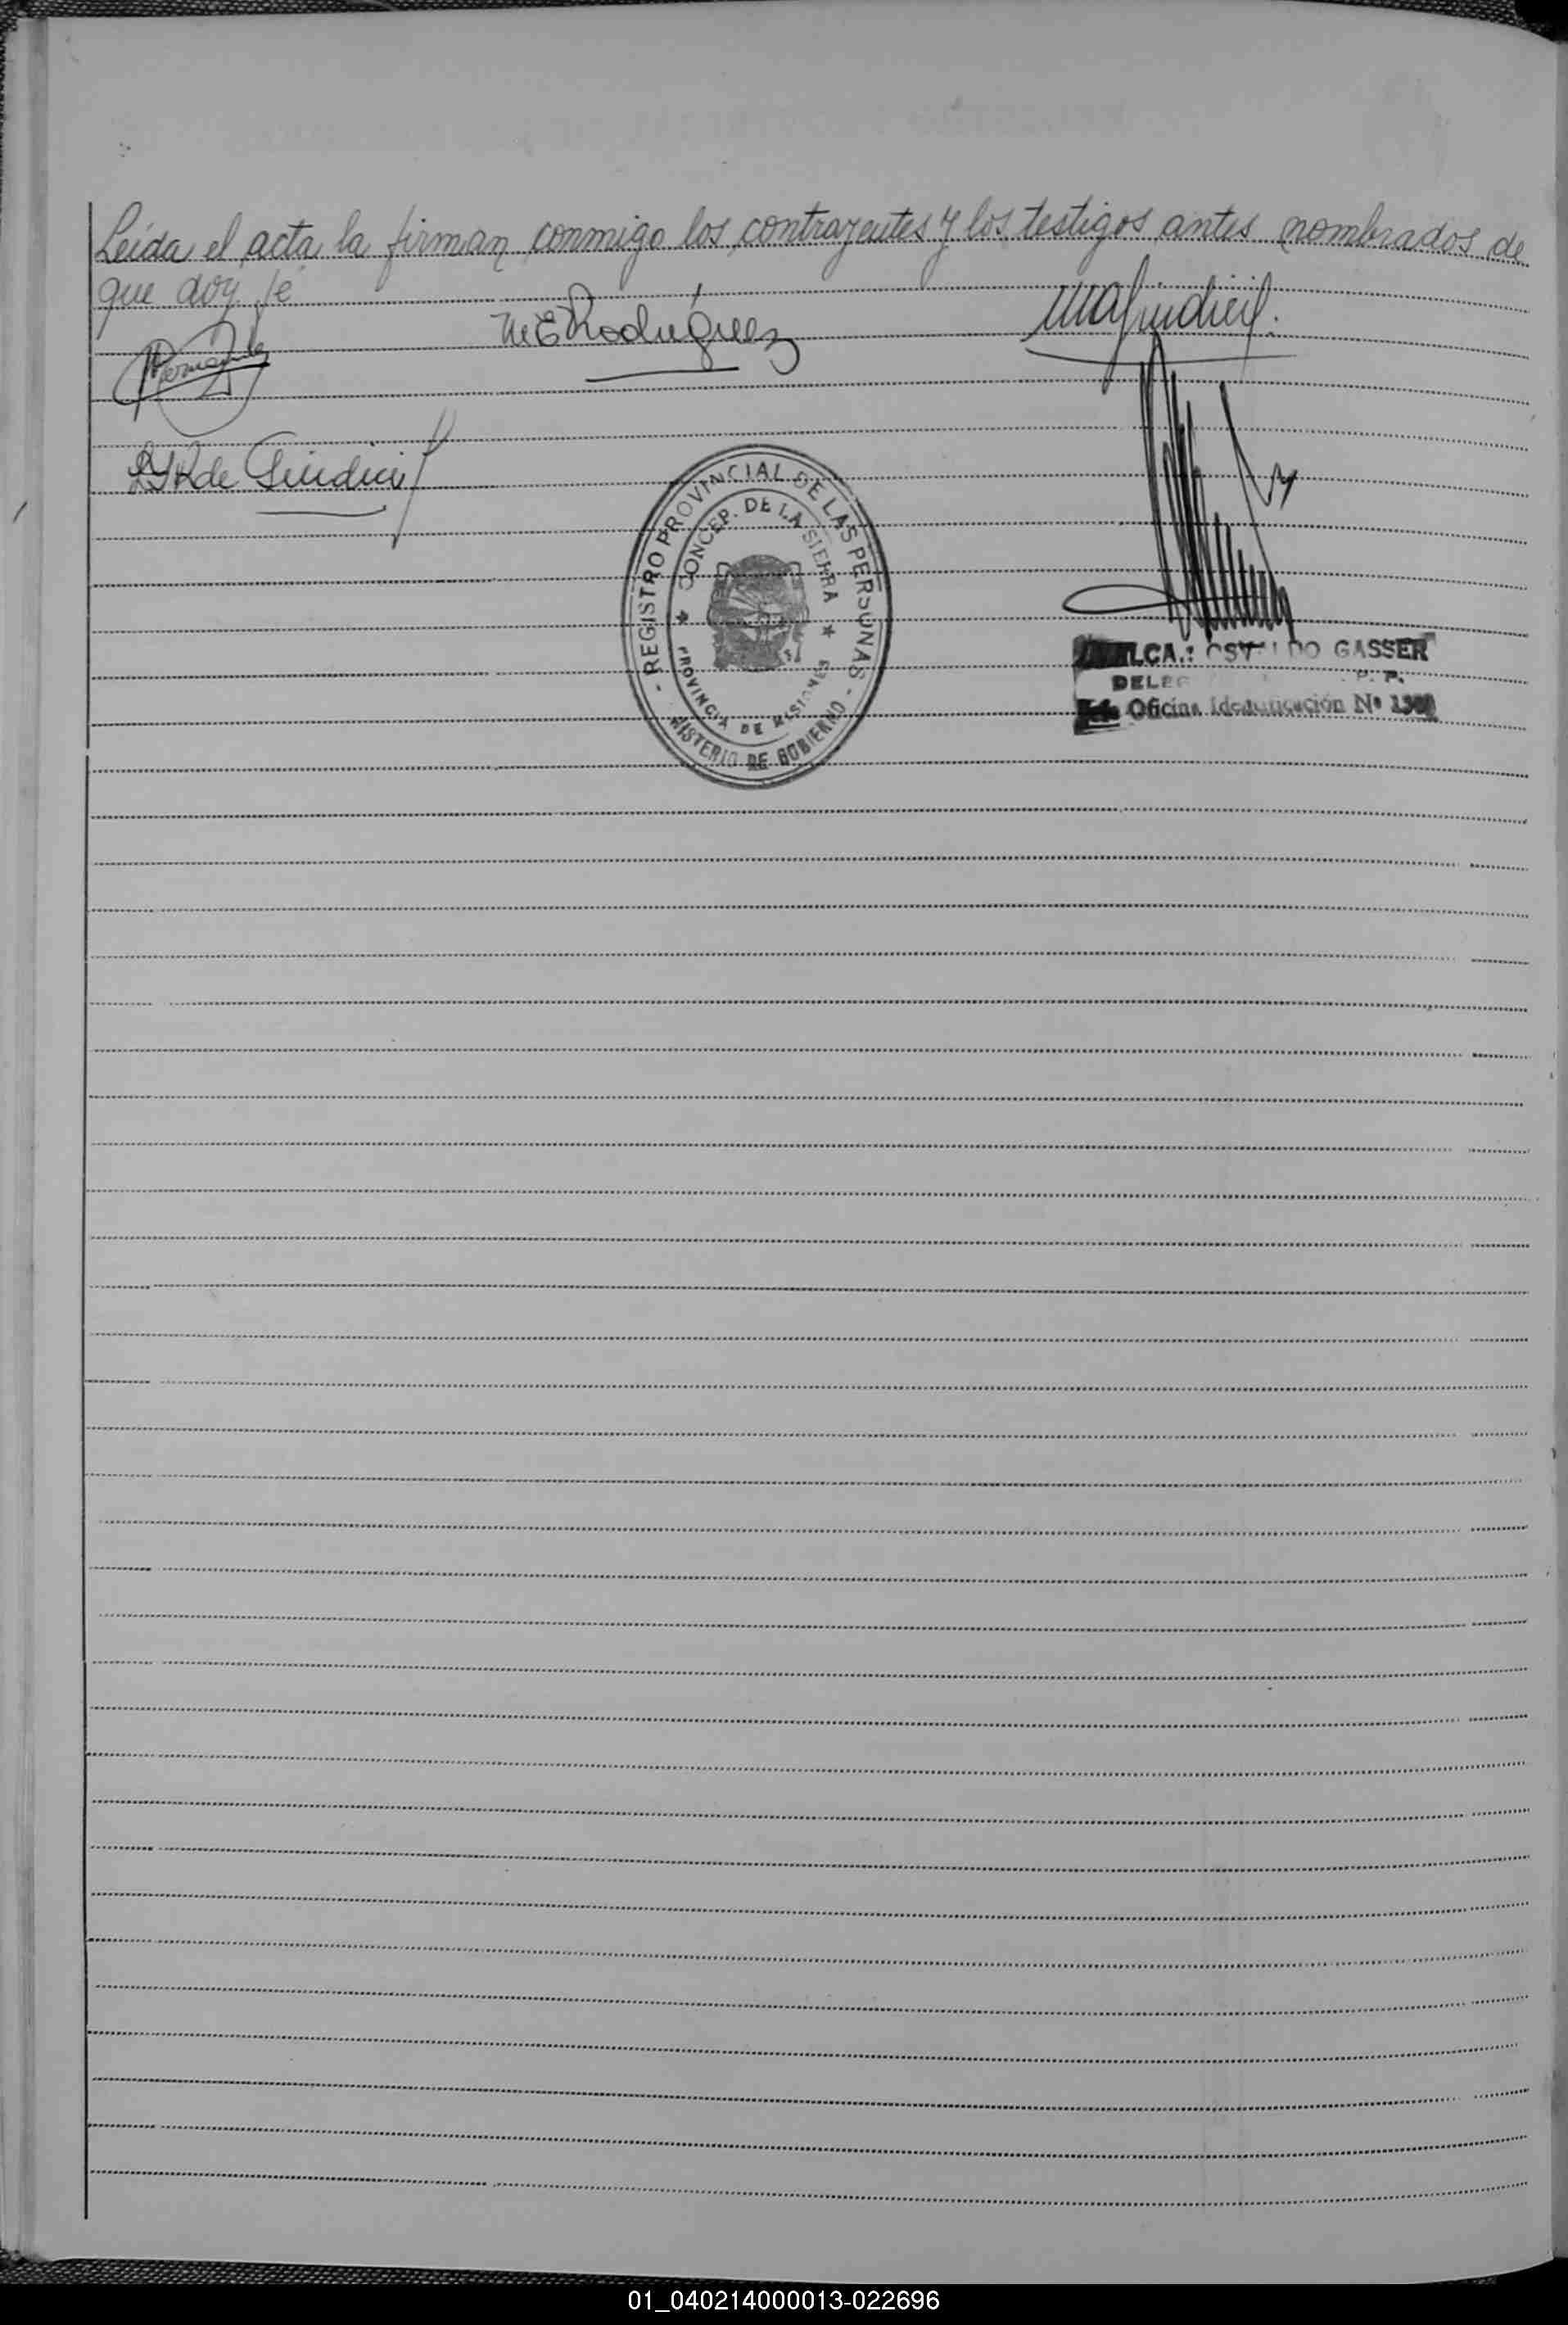 Leída el acta la firman conmigo los contrayentes y los testigos antes nombrados de
que doy fe
MERodríguez
REGISTRO PROVINCIAL DE LAS PERSONAS
CONCEP. DE LA SIERRA
PROVINCIA DE MISIONES
MISTERIO DE GOBIERNO
LCA.: OSVALDO GASSER
DELE R. P.
Oficina Identificación Nº
01_040214000013-022696